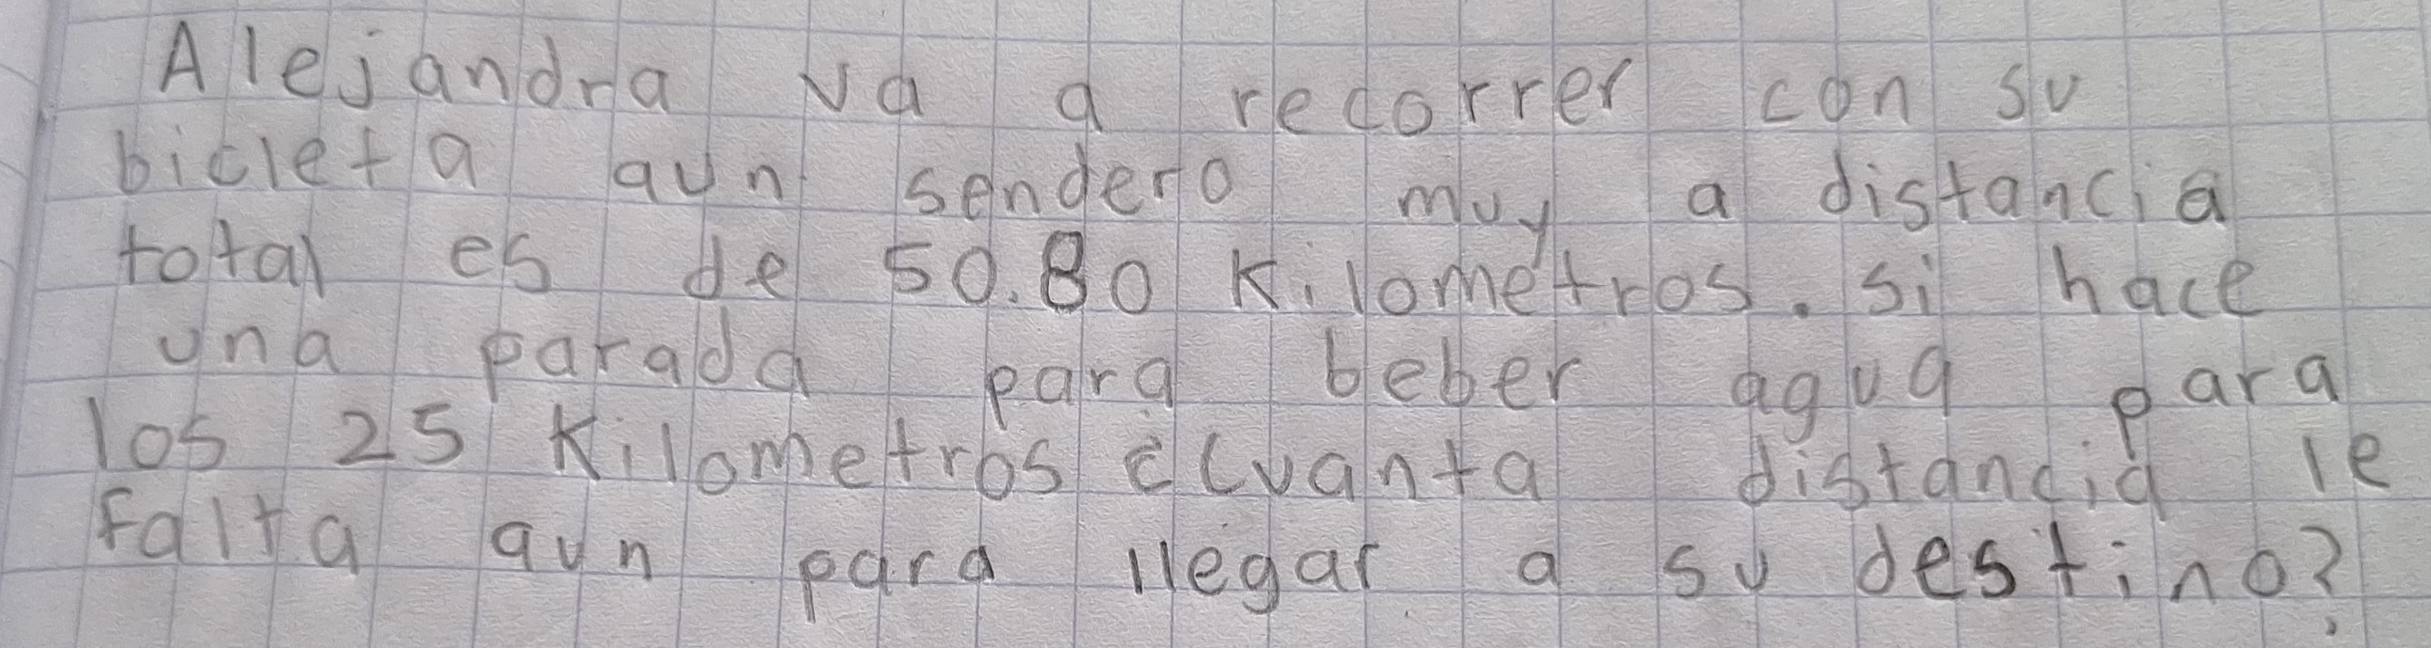 Alejandra va a recorrer con su
bicleta aun sendero muy a distancia
total es de 50.80 Kilometros. si hace
una parada para beber agua para
los 25 Kilometros ccuanta distancia le
falta aun para llegar a su destino?